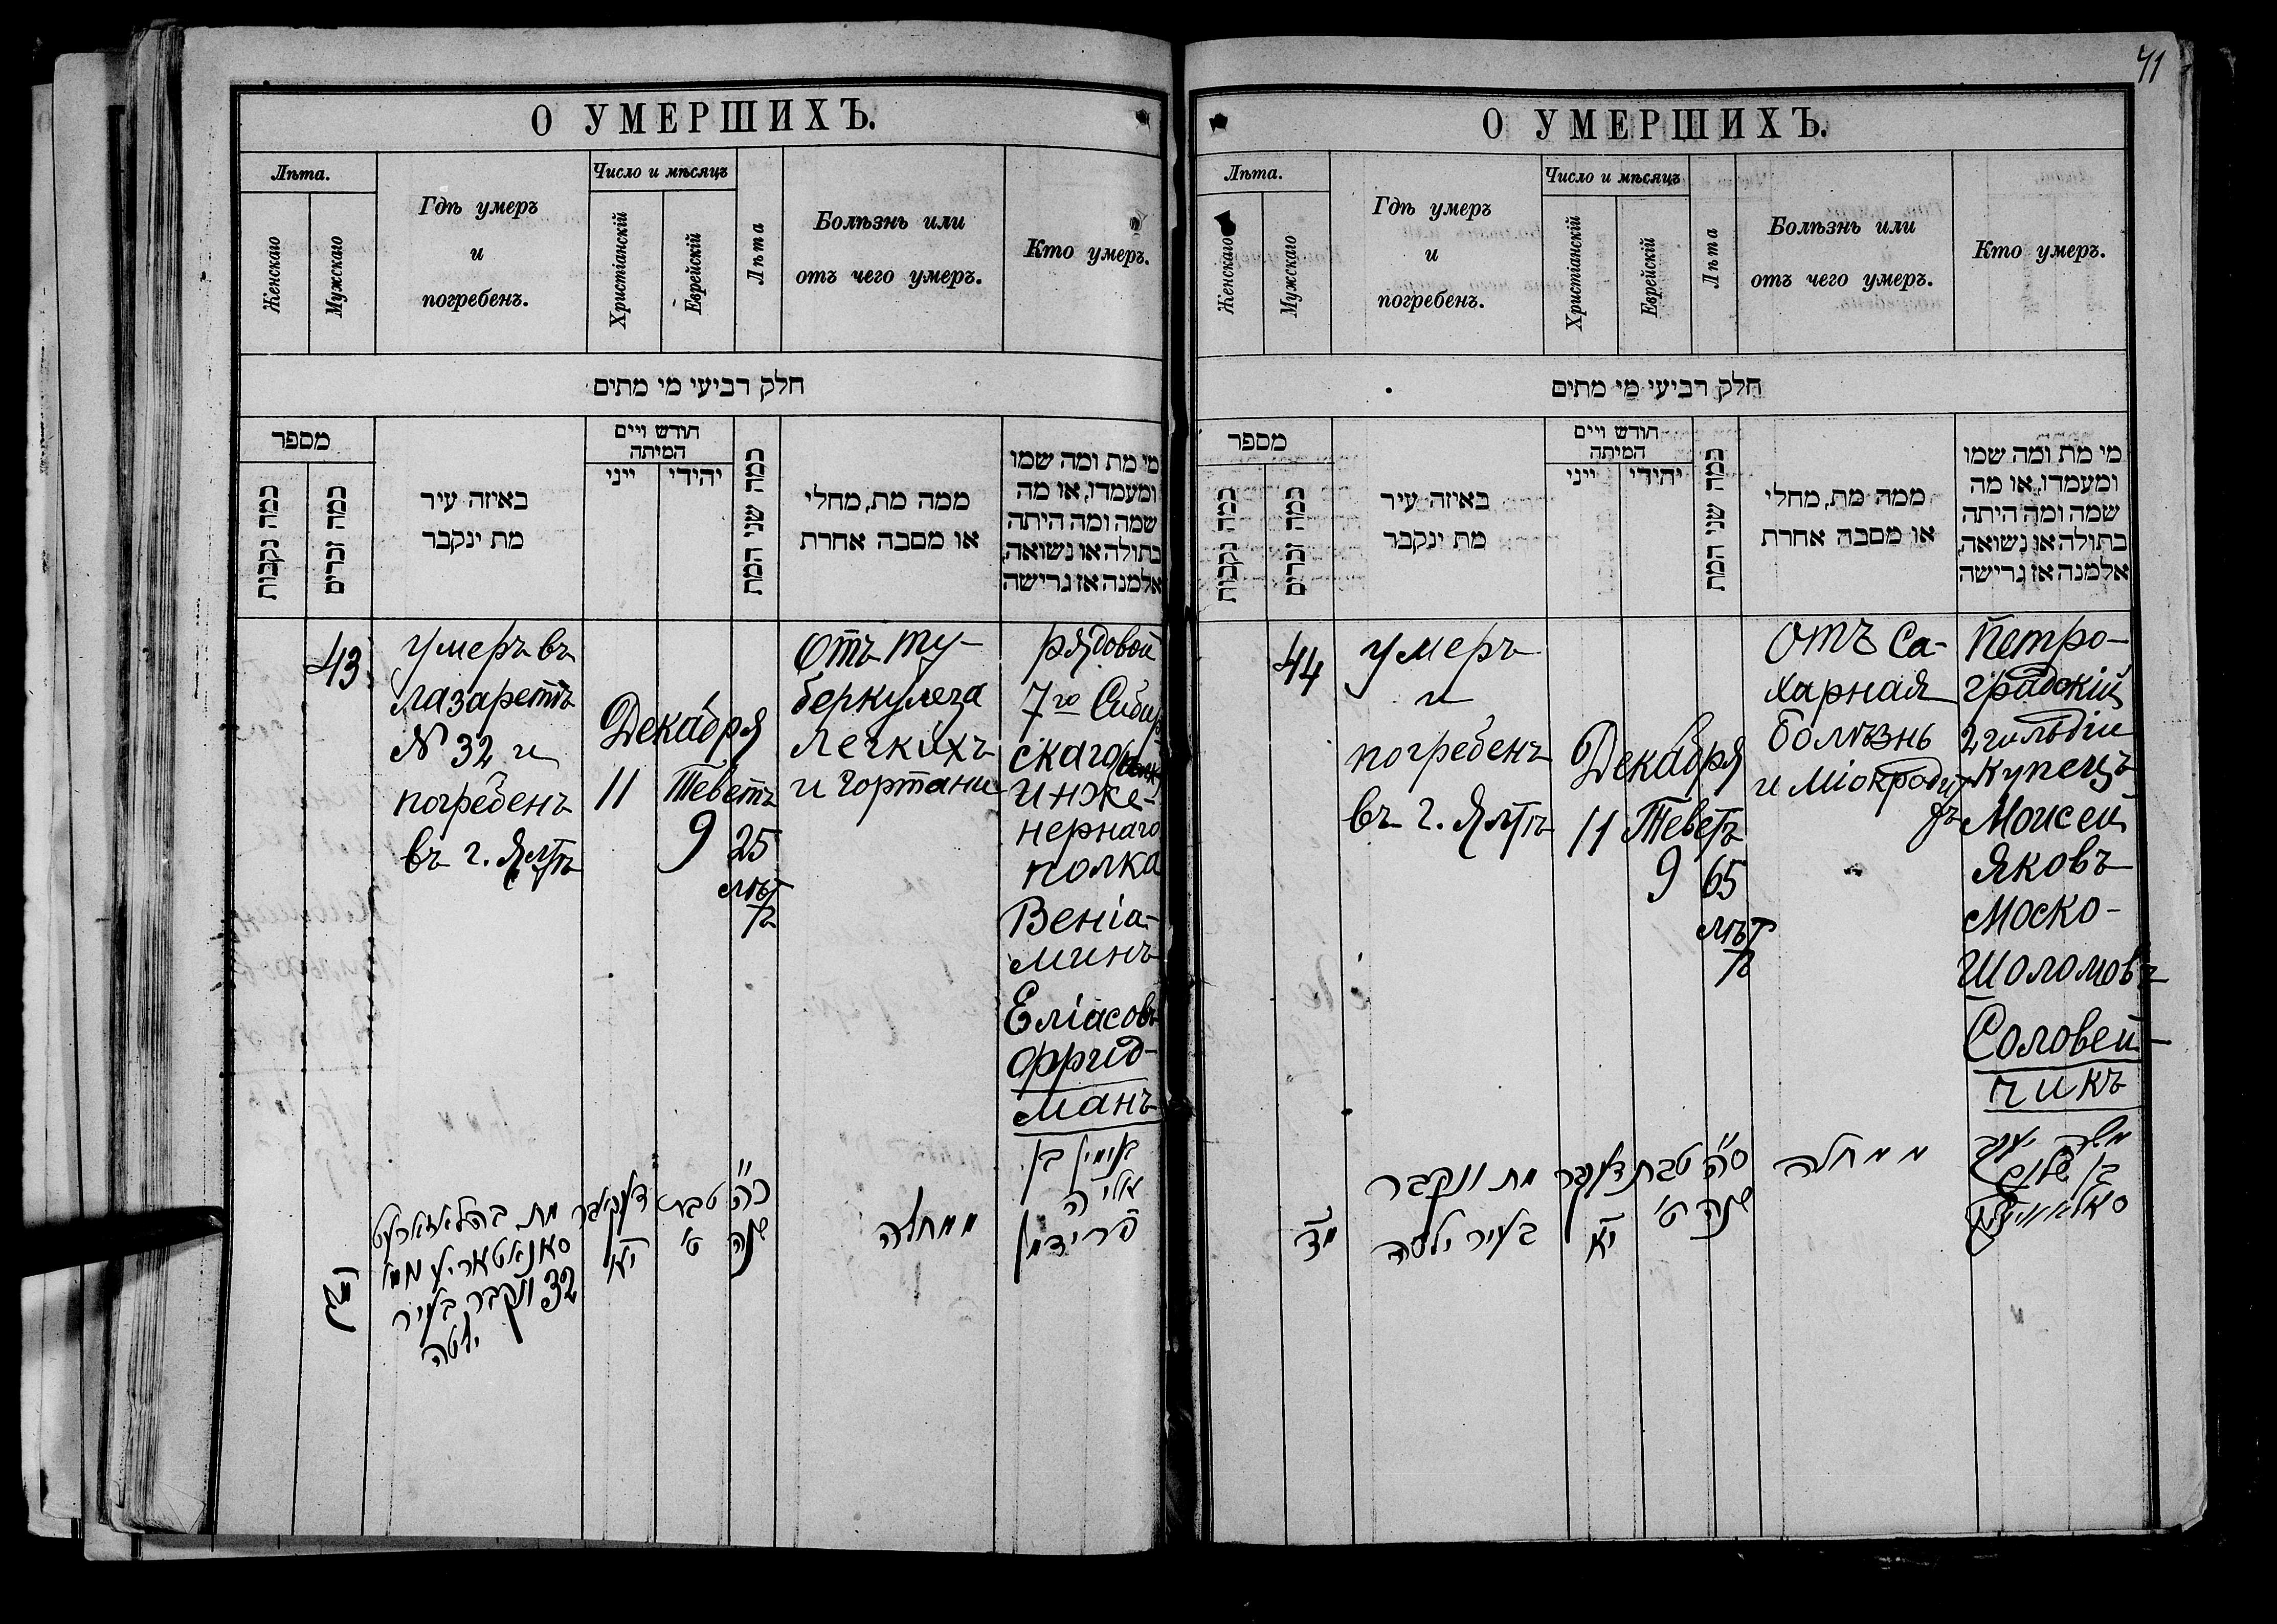 О УМЕРШИХЪ.
Лѣта.
Женскаго
Мужскаго
Гдѣ умеръ
и
погребенъ.
Число и мѣсяцъ
Христіанскій
Еврейскій
Лѣта
Болѣзнь или
отъ чего умеръ.
Кто умеръ.
חלק רביעי מי מתים
מספר
כמה נקבות
כמה זכרים
באיזה עיר
מת ינקבר
חודש ויים
המיתה
ייני
יהידי
כמה שני המת
ממה מת, מחלי
או מסבה אחרת
מי מת ומה שמו
ומעמדו, או מה
שמה ומה היתה
בתולה או נשואה,
אלמנה או גרישה
43
умеръ въ
лазаретѣ
№ 32 и
погребенъ
въ г. Ялтѣ
Декабря
11
Теветъ
9
25
лѣтъ
Отъ ту-
беркулеза
легкихъ
и гортани
рядовой
7го Сибир
скаго
инже-
нернаго
полка
Веніа-
минъ
Еліасовъ
Фрид-
манъ
בנימין בן
אליה
פרידמן
ממחלה
כ״ה
שנה
טבת
ט׳
דעקאבר
יא
מת
32 ונקבר בעיר
ילטה
מג
41
О УМЕРШИХЪ.
Лѣта.
Женскаго
Мужскаго
Гдѣ умеръ
и
погребенъ.
Число и мѣсяцъ
Христіанскій
Еврейскій
Лѣта
Болѣзнь или
отъ чего умеръ.
Кто умеръ.
חלק רביעי מי מתים
מספר
כמה נקבות
כמה זכרים
באיזה עיר
מת ינקבר
חודש ויים
המיתה
ייני
יהידי
כמה שני המת
ממה מת, מחלי
או מסבה אחרת
מי מת ומה שמו
ומעמדו, או מה
שמה ומה היתה
בתולה או נשואה,
אלמנה או גרישה
44
умеръ
и
погребенъ
въ г. Ялтѣ
Декабря
11
Теветъ
9
65
лѣтъ
Отъ Са-
харная
болѣзнь
и
Петро-
градскій
2 гильдіи
Купецъ
Моисей
Яковъ
Моско-
Шоломовъ
Соловей-
чикъ
משה יעקב
בן שלום
ממחלה
ס״ה
שנה
טבת
ט׳
יא
מת ונקבר
בעיר ילטה
מד